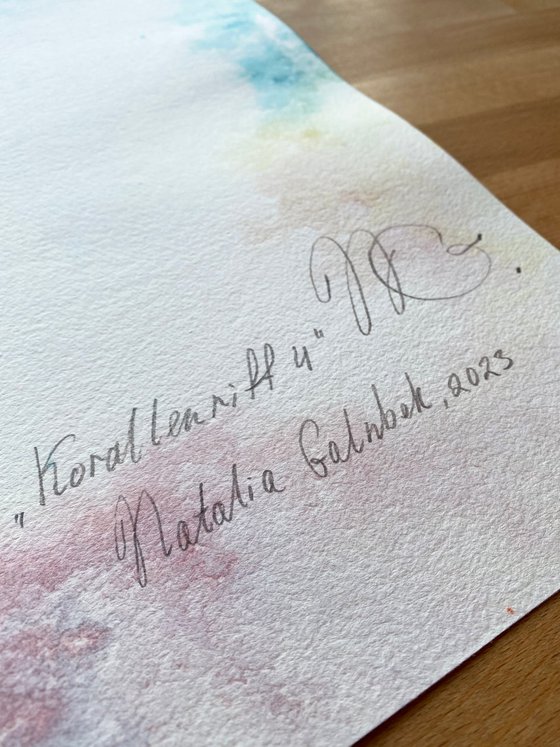 „Korallenriff 4"
Natalia , 2023